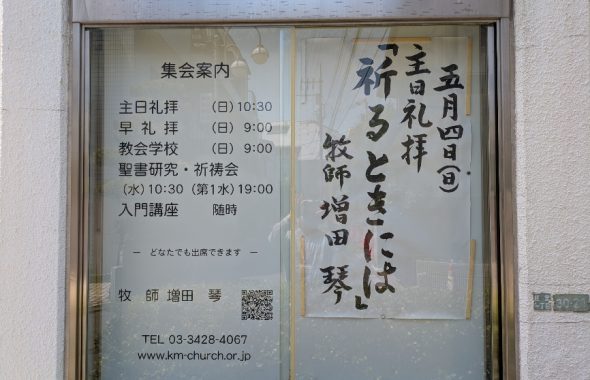 集会案内
主日礼拝 （日）10:30
早 礼 拝 （日） 9:00
教会学校 （日） 9:00
聖書研究・祈祷会
（水）10:30 （第1水）19:00
入門講座 随時
― どなたでも出席できます ―
牧 師 増田 琴
TEL 03-3428-4067
www.km-church.or.jp
五月四日（日）
主日礼拝
「祈るときには」
牧師 増田 琴